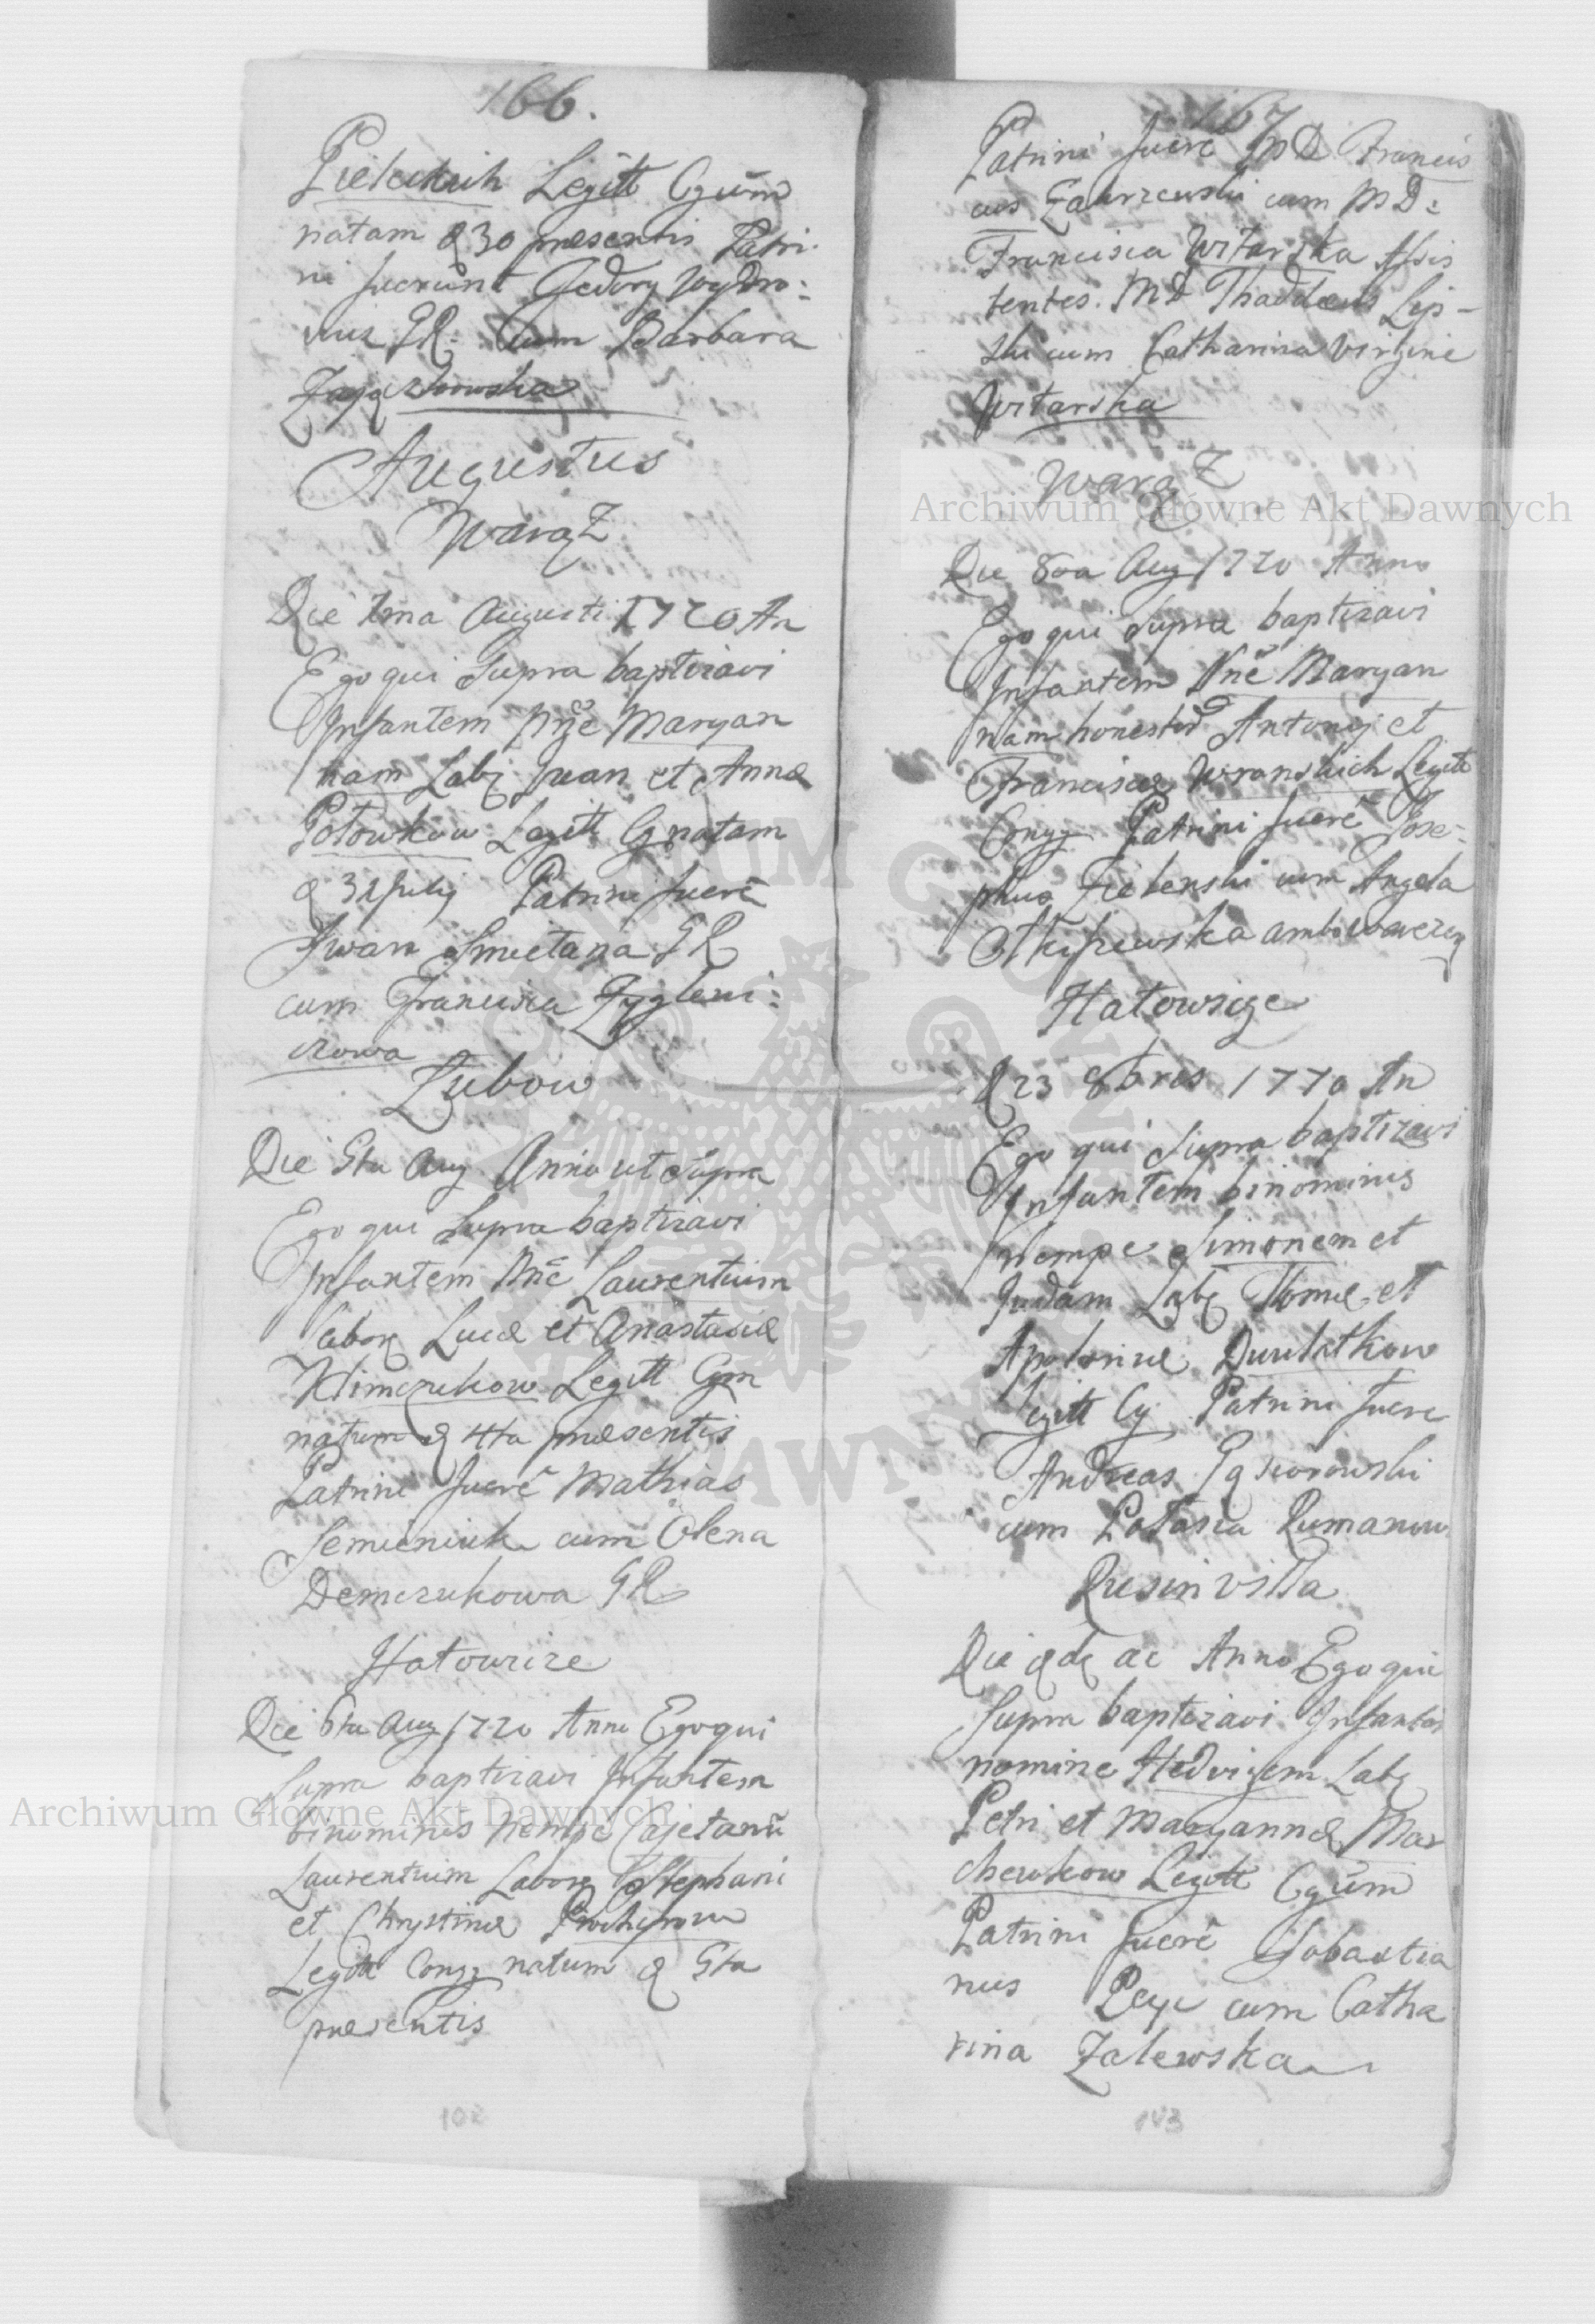 166.
Legitt Cgum
natam d 30 praesentis Patri:
ni fuerunt Fedory Wydro:
GR: Cum Barbara
Augustus
WarąZ
Die 1ma Augusti 1770 An
Ego qui Supra baptizavi
Infantem Nne Maryan
nam Lab Iwan et Annae
Połowkow Legitt Cg natam
d 31 Julij Patrini fuere
Iwan Smietana GR
cum Francisca Zygleni:
czowa
Zubow
Die 5ta Aug Anno ut Supra
Ego qui Supra baptizavi
Infantem Nne Laurentium
Labor Lucae et Anastasiae
Klimczukow Legitt Cgm
natum d 4ta praesentis
Patrini fuere Mathias
Semieniuk cum Olena
Demczukowa GR
Hatowize
Die 6ta Aug 1770 Anni Ego qui
Supra baptizavi Infantem
binominis Nempe Cajetanu
Laurentium Labor Stephani
et Chrystinae
Legitt Cong natum d 5ta
praesentis
102
167
Patrini fuere MD Francis
cus cum MD:
Francisca Witarska Assis
tentes. MD Thaddeus Lip-
ski cum Catharina Virgine
Witarska
WarąZ
Die 8va Aug 1770 Anno
Ego qui Supra baptizavi
Infantem Nne Maryan
nam honestor Antonij et
Franciscae Wronskich Legitt
Cong Patrini fuere Jose-
phus Zielenski cum Angela
ambo
Hatowicze
d 23 8bres 1770 An
Ego qui Supra baptizavi
Infantem binominis
Nempe Simonem et
Judam Lab Thomae et
Apoloniae
Legitt Cg Patrini fuere
Andreas Gąsiorowski
cum Rumanow
Rusin Villa
Die ac Anno Ego qui
Supra baptizavi Infantem
nomine Hedvigem Lab
Petri et Maryannae Mar
chewkow Legitt Cgum
Patrini fuere Sobastia
nus cum Catha
rina Zalewska
103
Archiwum Główne Akt Dawnych
Archiwum Główne Akt Dawnych